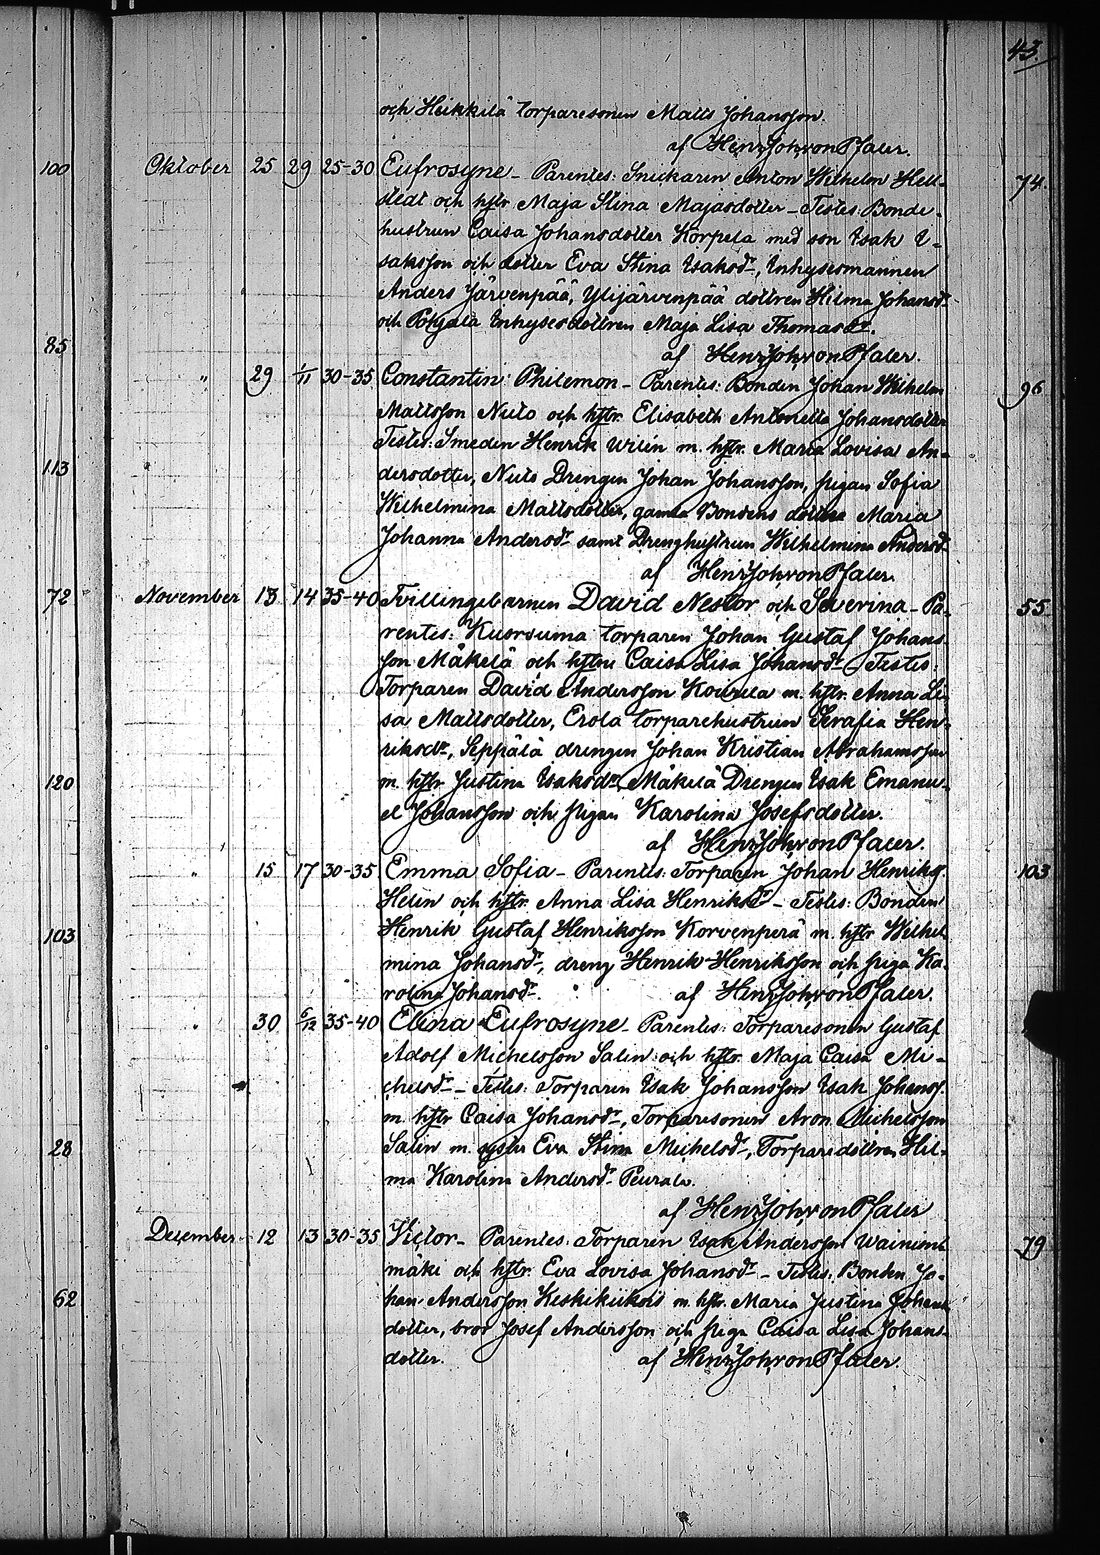 43.
och Heikkilä torparesonen Matts Johansson.
af HenrJohvonPfaler.
100 Oktober 25 29 25-30 Eufrosyne - Parentes: Snickaren Anton Wilhelm Hell- 74.
stedt och hstr Maja Stina Majasdotter - Testes: Bonde-
hustrun Caisa Johansdotter Korpela med son Isak I-
saksson och dotter Eva Stina Isaksdr, Inhysesmannen
Anders Järvenpää, Ylijärvenpää dottren Hilma Johansdr
och Pohjala Inhysesdottren Maja Lisa Thomasdr.
85 af HenrJohvonPfaler.
" 29 1/11 30-35 Constantin Philemon - Parentes: Bonden Johan Wilhelm 96
Mattsson Nuto och hstr. Elisabeth Antonetta Johansdotter
Testes: Smeden Henrik Wilén m. hstr. Maria Lovisa An-
113 dersdotter, Nuto Drengen Johan Johansson, pigan Sofia
Wilhelmina Mattsdotter, gamla Bondens dottra Maria
Johanna Andersdr samt Drenghustrun Wilhelmina Andersdr
af HenrJohvonPfaler.
72 November 13 14 35-40 Tvillingebarnen David Nestor och Severina - Pa- 55.
rentes: Kuorsuma torparen Johan Gustaf Johans-
son Mäkelä och hstru Caisa Lisa Johansdr - Testes:
Torparen David Andersson m. hstr. Anna Li-
sa Mattsdotter, Erola torparehustrun Serafia Hen-
riksdr, Seppälä drengen Johan Kristian Abrahamsson
120 m. hstr Justina Isaksdr, Mäkelä Drengen Isak Emanu-
el Johansson och pigan Karolina Josefsdotter.
af HenrJohvonPfaler.
" 15 17 30-35 Emma Sofia - Parentes: Torparen Johan Henrikss. 103
Helin och hstr. Anna Lisa Henriksdr - Testes: Bonden
103 Henrik Gustaf Henriksson Korvenperä m. hstr Wilhel
mina Johansdr, dreng Henrik Henriksson och piga Ka-
rolina Johansdr. af HenrJohvonPfaler.
" 30 6/12 35-40 Elina Eufrosyne - Parentes: Torparesonen Gustaf
Adolf Michelsson Salin och hstr. Maja Caisa Mi-
chelsdr - Testes: Torparen Isak Johansson Isak Johanss.
m. hstr Caisa Johansdr, Torparesonen Aron Michelsson
28 Salin m. syster Eva Stina Michelsdr, Torparedottren Hil-
ma Karolina Andersdr Peurala.
af HenrJohvonPfaler
December 12 13 30-35 Victor - Parentes: Torparen Isak Andersson Wainion- 79
mäki och hstr. Eva Lovisa Johansdr - Testes: Bonden Jo-
62 han Andersson Keskikiikois m. hstr. Maria Justina Johans
dotter, bror Josef Andersson och piga Caisa Lisa Johans-
dotter. af HenrJohvonPfaler.